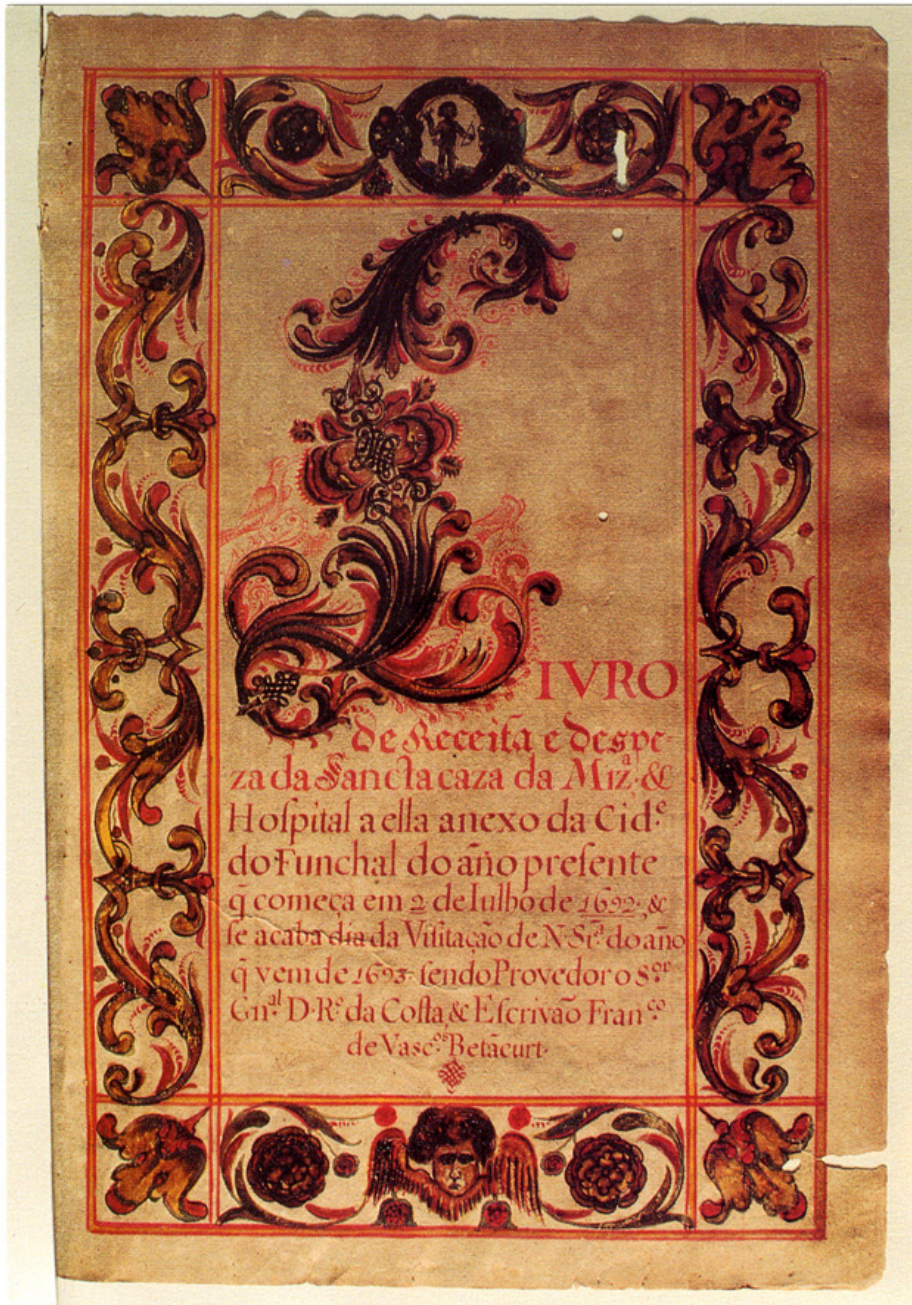 LIVRO
de Receita e despe-
za da Sancta caza da Miz.ª &
Hoſpital a ella anexo da Cid.e
do Funchal do año preſente
q̃ começa em 2 de Iulho de 1692. &
ſe acaba dia da Viſitação de N. Sr.ª do año
q̃ vem de 1693. ſendo Provedor o S.or
Gn.al D. R.o da Coſta, & Eſcrivaõ Fran.co
de Vasc.os Betãcurt.